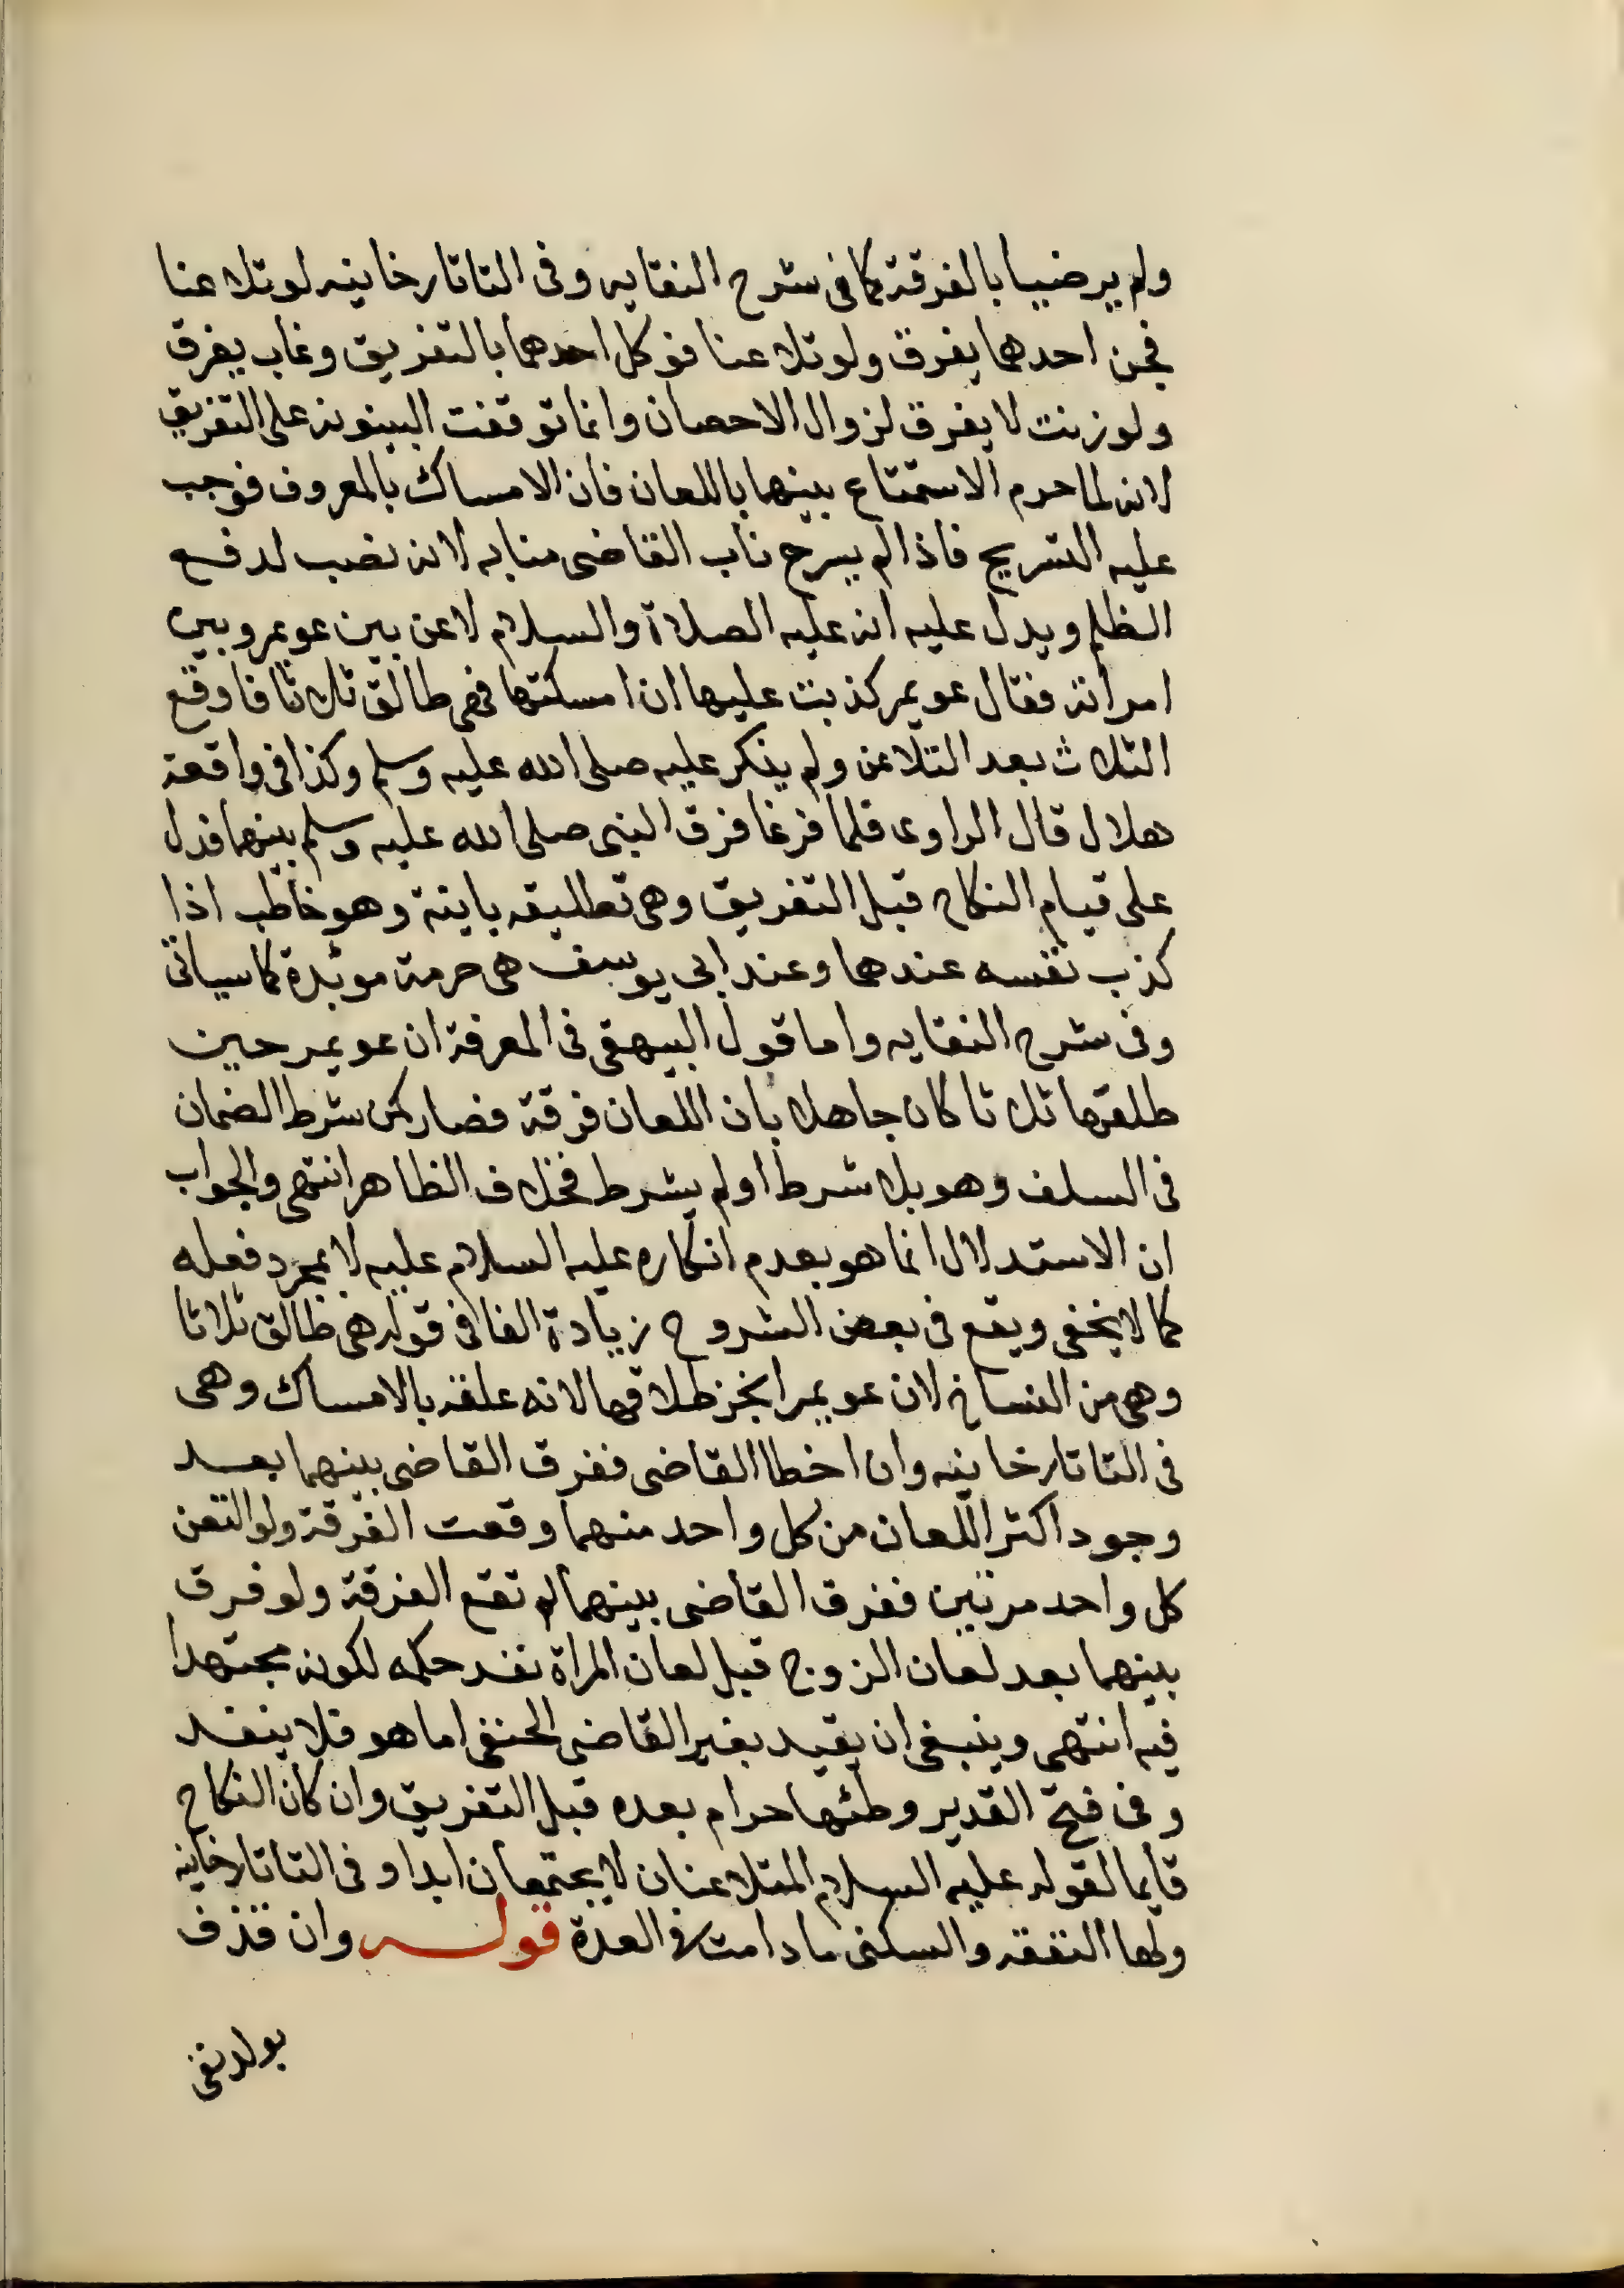 ولم يرضيا بالفرقة كما في شرح النقايه وفي التاتارخانيه لو تلاعنا
فجن احدهما يفرق ولو تلاعنا فوكل احدهما بالتفريق وغاب يفرق
ولو زنت لا يفرق لزوال الاحصان وانما توقفت البينونه على التفريق
لانه لما حرم الاستمتاع بينهما باللعان فان الامساك بالمعروف فوجب
عليه التسريح فاذا لم يسرح ناب القاضي منابه لانه نصب لدفع
الظلم ويدل عليه انه عليه الصلاة والسلام لاعن بين عويمر وبين
امراته فقال عويمر كذبت عليها ان امسكتها فهي طالق ثلاثا فاوقع
الثلاث بعد التلاعن ولم ينكر عليه صلى الله عليه وسلم وكذا في واقعة
هلال قال الراوي فلما فرغا فرق النبي صلى الله عليه وسلم بينهما فدل
على قيام النكاح قبل التفريق وهي تطليقه باينة وهو خاطب اذا
كذب نفسه عندهما وعند ابي يوسف هي حرمة موبدة كما سياتي
وفي شرح النقايه واما قول البيهقي في المعرفة ان عويمر حين
طلقها ثلاثا كان جاهلا بان اللعان فرقة فصار كمن شرط الضمان
في السلف وهو بلا شرط اولم يشرط فخلاف الظاهر انتهى والجواب
ان الاستدلال انما هو بعدم انكاره عليه السلام عليه لا بمجرد فعله
كما لا يخفى ويقع في بعض الشروح زيادة الفا في قوله هي طالق ثلاثا
وهي من النساخ لان عويمرا نجز طلاقها لا انه علقه بالامساك وهي
في التاتارخانيه وان اخطا القاضي ففرق القاضي بينهما بعد
وجود اكثر اللعان من كل واحد منهما وقعت الفرقة ولو التعن
كل واحد مرتين ففرق القاضي بينهما لم تقع الفرقة ولو فرق
بينهما بعد لعان الزوج قبل لعان المراة نفد حكمه لكونه مجتهدا
فيه انتهى وينبغي ان يقيد بغير القاضي الحنفي اما هو فلا ينفد
وفي فتح القدير وطئها حرام بعده قبل التفريق وان كان النكاح
قايما لقوله عليه السلام المتلاعنان لا يجتمعان ابدا وفي التاتارخانيه
ولها النفقه والسكنى ما دامت في العدة قوله وان قذف
بولد نفي